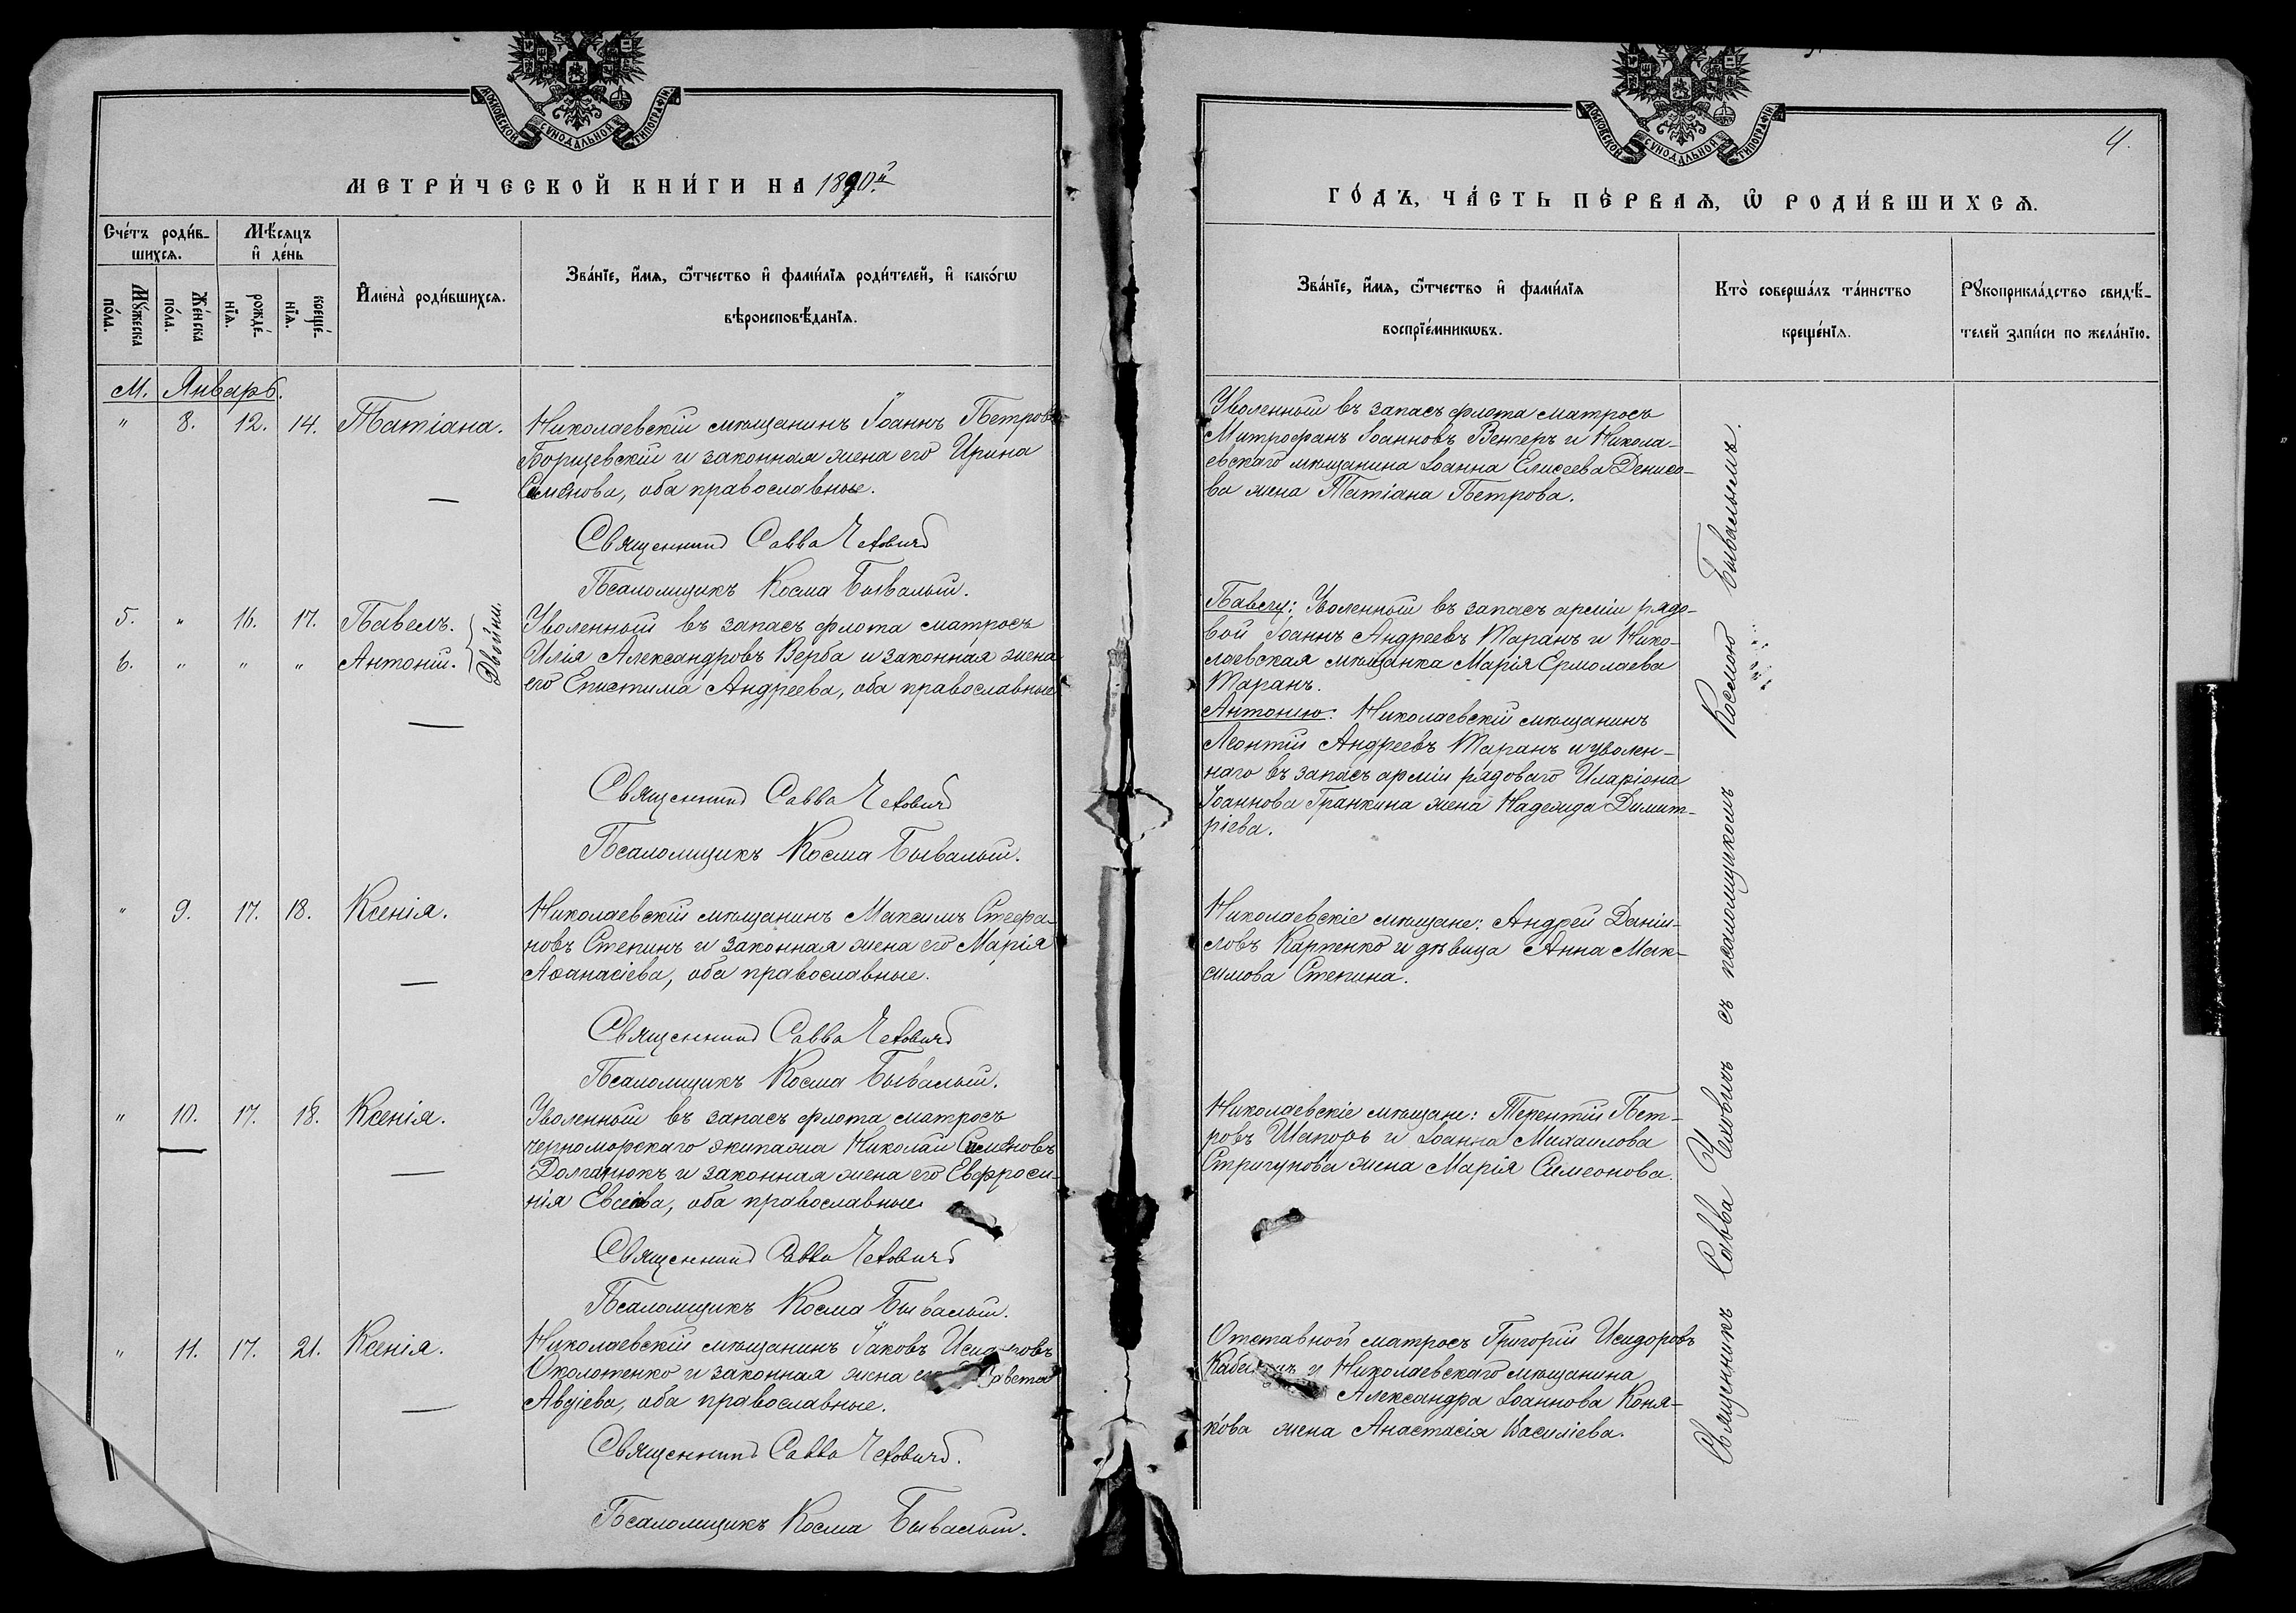 МОСКОВСКОЙ СѴНОДАЛЬНОЙ ТИПОГРАФІИ
МЕТРИ́ЧЕСКОЙ КНИ́ГИ НА 1890й
Сче́тъ роди́в-
шихсѧ.
Мѣ́сяцъ
и҆ де́нь
Мꙋ́жеска
по́ла.
Же́нска
по́ла.
рожде́-
нїѧ.
креще́-
нїѧ.
И҆мена̀ роди́вшихсѧ.
Зва́нїе, и҆́мѧ, ѻ҆́тчество и҆ фами́лїѧ роди́телей, и҆ како́гѡ
вѣроисповѣ́данїѧ.
М. Январь.
" 8. 12. 14. Татіана.
Николаевскій мѣщанинъ Іоаннъ Петровъ
Борщевскій и законная жена его Ирина
Симеонова, оба православные.
Священникъ Савва Чехович
Псаломщикъ Косма Бывалый.
5. " 16. 17. Павелъ.
6. " " " Антоній.
Двойни.
Уволенный въ запасъ флота матросъ
Илія Александровъ Верба и законная жена
его Епистима Андреева, оба православные
Священникъ Савва Чехович
Псаломщикъ Косма Бывалый.
" 9. 17. 18. Ксенія.
Николаевскій мѣщанинъ Максимъ Стефа-
новъ Степинъ и законная жена его Марія
Аѳанасіева, оба православные.
Священникъ Савва Чехович
Псаломщикъ Косма Бывалый.
" 10. 17. 18. Ксенія.
Уволенный въ запасъ флота матросъ
черноморскаго экипажа Николай Симеоновъ
и законная жена его Евфроси-
нія Евсеіва, оба православные
Священникъ Савва Чехович
Псаломщикъ Косма Бывалый.
" 11. 17. 21. Ксенія.
Николаевскій мѣщанинъ Іаковъ
Околотенко и законная жена
Авдіева, оба православные.
Священникъ Савва Чехович.
Псаломщикъ Косма Бывалый.
МОСКОВСКОЙ СѴНОДАЛЬНОЙ ТИПОГРАФІИ
4.
ГО́ДЪ, ЧА́СТЬ ПЕ́РВАѦ, Ѽ РОДИ́ВШИХСѦ.
Зва́нїе, и҆́мѧ, ѻ҆́тчество и҆ фами́лїѧ
воспрїе́мникѡвъ.
Кто̀ соверша́лъ та́инство
креще́нїѧ.
Рꙋкоприкла́дство свидѣ́-
телей за́писи по жела́нїю.
Уволенный въ запасъ флота матросъ
Митрофанъ Іоанновъ Венгеръ и Никола-
евскаго мѣщанина Іоанна Елисеева Денисо-
ва жена Татіана Петрова.
Павлу: Уволенный въ запасъ арміи рядо-
вой Іоаннъ Андреевъ Таранъ и Нико-
лаевская мѣщанка Марія Ермолаева
Таранъ.
Антонію: Николаевскій мѣщанинъ
Леонтій Андреевъ Таранъ и уволен-
наго въ запасъ арміи рядоваго Иларіона
Іоаннова Гранкина жена Надежда Димит-
ріева.
Николаевскіе мѣщане: Андрей Даніи-
ловъ Карпенко и дѣвица Анна Мак-
симова Степина.
Николаевскіе мѣщане: Терентій Пет-
ровъ Шапорь и Іоанна Михаилова
Стригунова жена Марія Симеонова.
Отставной матросъ Григорій Исидоровъ
и Николаевскаго мѣщанина
Александра Іоаннова Коня-
кова жена Анастасія Василіева.
Священникъ Савва Чеховичъ съ псаломщикомъ Космою Бывалымъ.